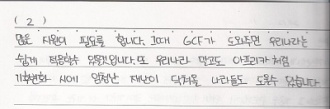 ( 2 )
많은 자원이 필요를 합니다. 그때 GCF가 도와주면 우리나라는
쉽게 적응할수 있을것입니다. 또 우리나라 말고도 아프리카 처럼
기후변화 시에 엄청난 재난이 닥쳐올 나라들도 도울수 있습니다